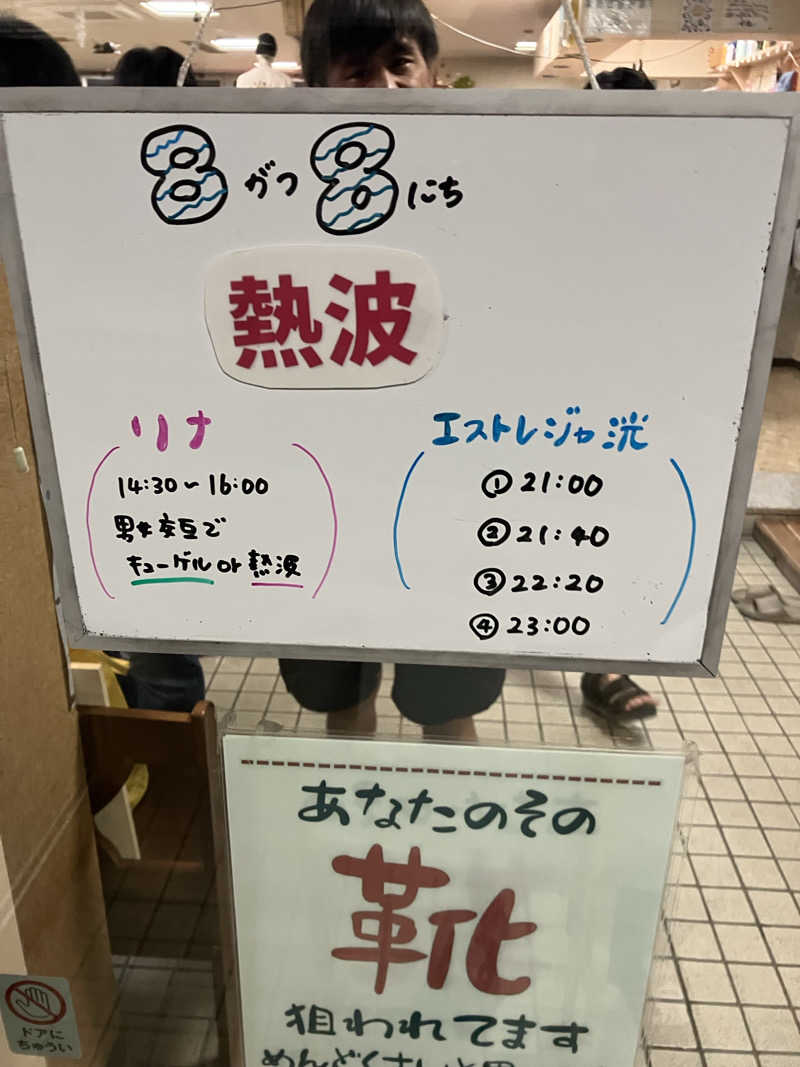 8がつ8にち
熱波
リナ
14:30~16:00
男女交互で
キューゲル or 熱波
エストレジャ洸
①21:00
②21:40
③22:20
④23:00
あなたのその
靴
狙われてます
めんどくさいと思
ドアに
ちゅうい